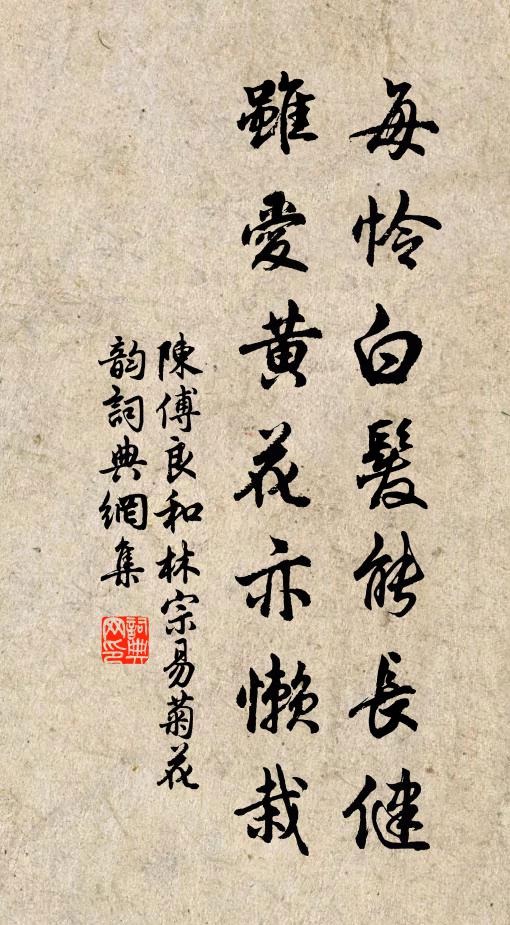 每怜白髮能長健
雖愛黄花亦懶栽
陳傅良和林宗易菊花
韵詞典網集
詞典網印